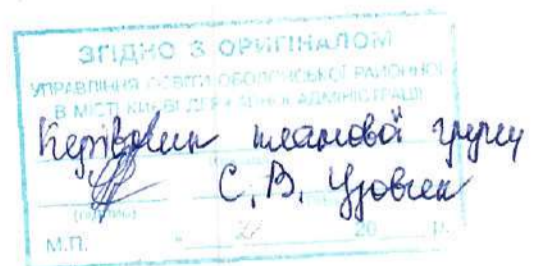 ЗГІДНО З ОРИГІНАЛОМ
УПРАВЛІННЯ ОСВІТИ ОБОЛОНСЬКОЇ РАЙОННОЇ
В МІСТІ КИЄВІ ДЕРЖАВНОЇ АДМІНІСТРАЦІЇ
Керівник планової групи
С. В.
(підпис)
М.П. 20 р.